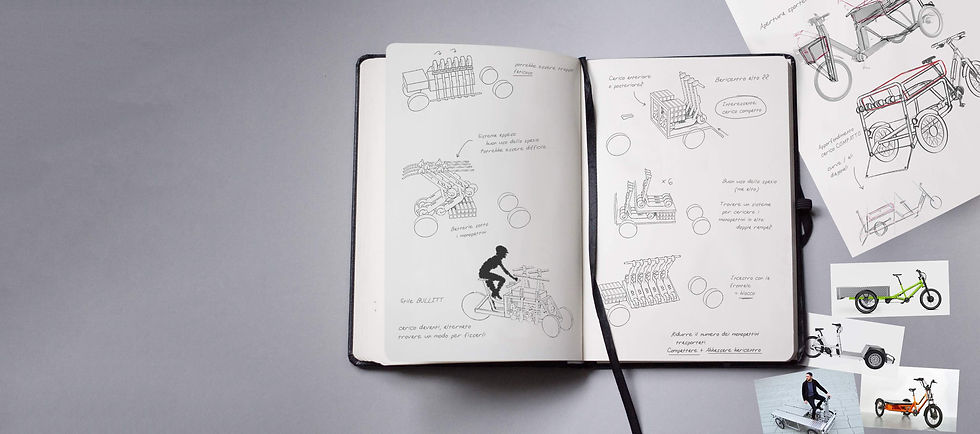 potrebbe essere troppo
faticoso
Sistema doppio:
buon uso dello spazio
Potrebbe essere difficile
Batterie sotto
i monopattini
Stile BULLITT
carico davanti, alternato
trovare un modo per fissarli
Carico anteriore
o posteriore?
Baricentro alto ??
Interessante:
carico compatto
x 6
Buon uso dello spazio
(ma alto)
Trovare un sistema
per caricare i
monopattini in alto
doppia rampa?
Incastro con la
frontale
= blocco
Ridurre il numero dei monopattini
trasportati
Compattare + Abbassare baricentro
Apertura